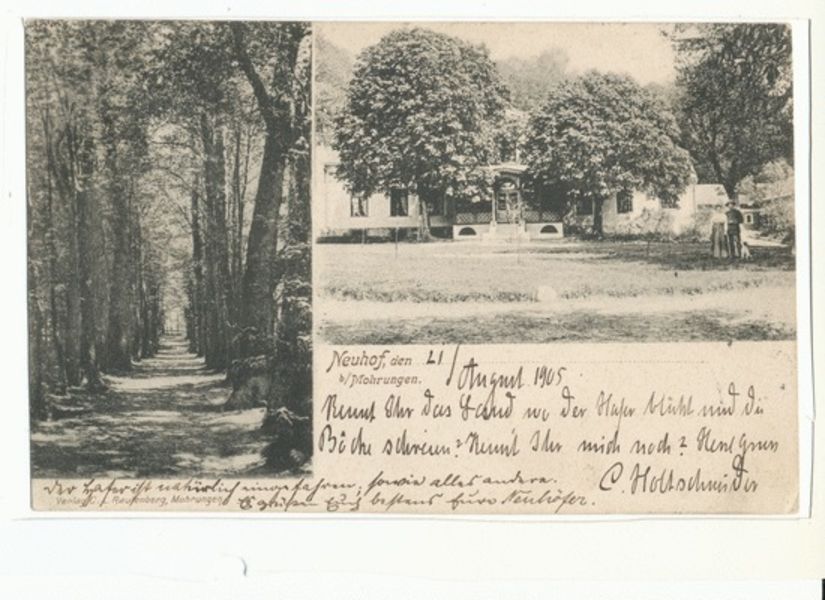 Neuhof, den 21/ August 1905
b/Mohrungen.
Kennt Ihr das Land wo der Hafer blüht und die
Böcke schreien? Kennt Ihr mich noch?
C. Holtschneider
Der Hafer ist natürlich eingefahren, sowie alles andere.
Es grüßen Euch bestens Eure Neuhöfer.
Verlag C. L. Rautenberg, Mohrungen